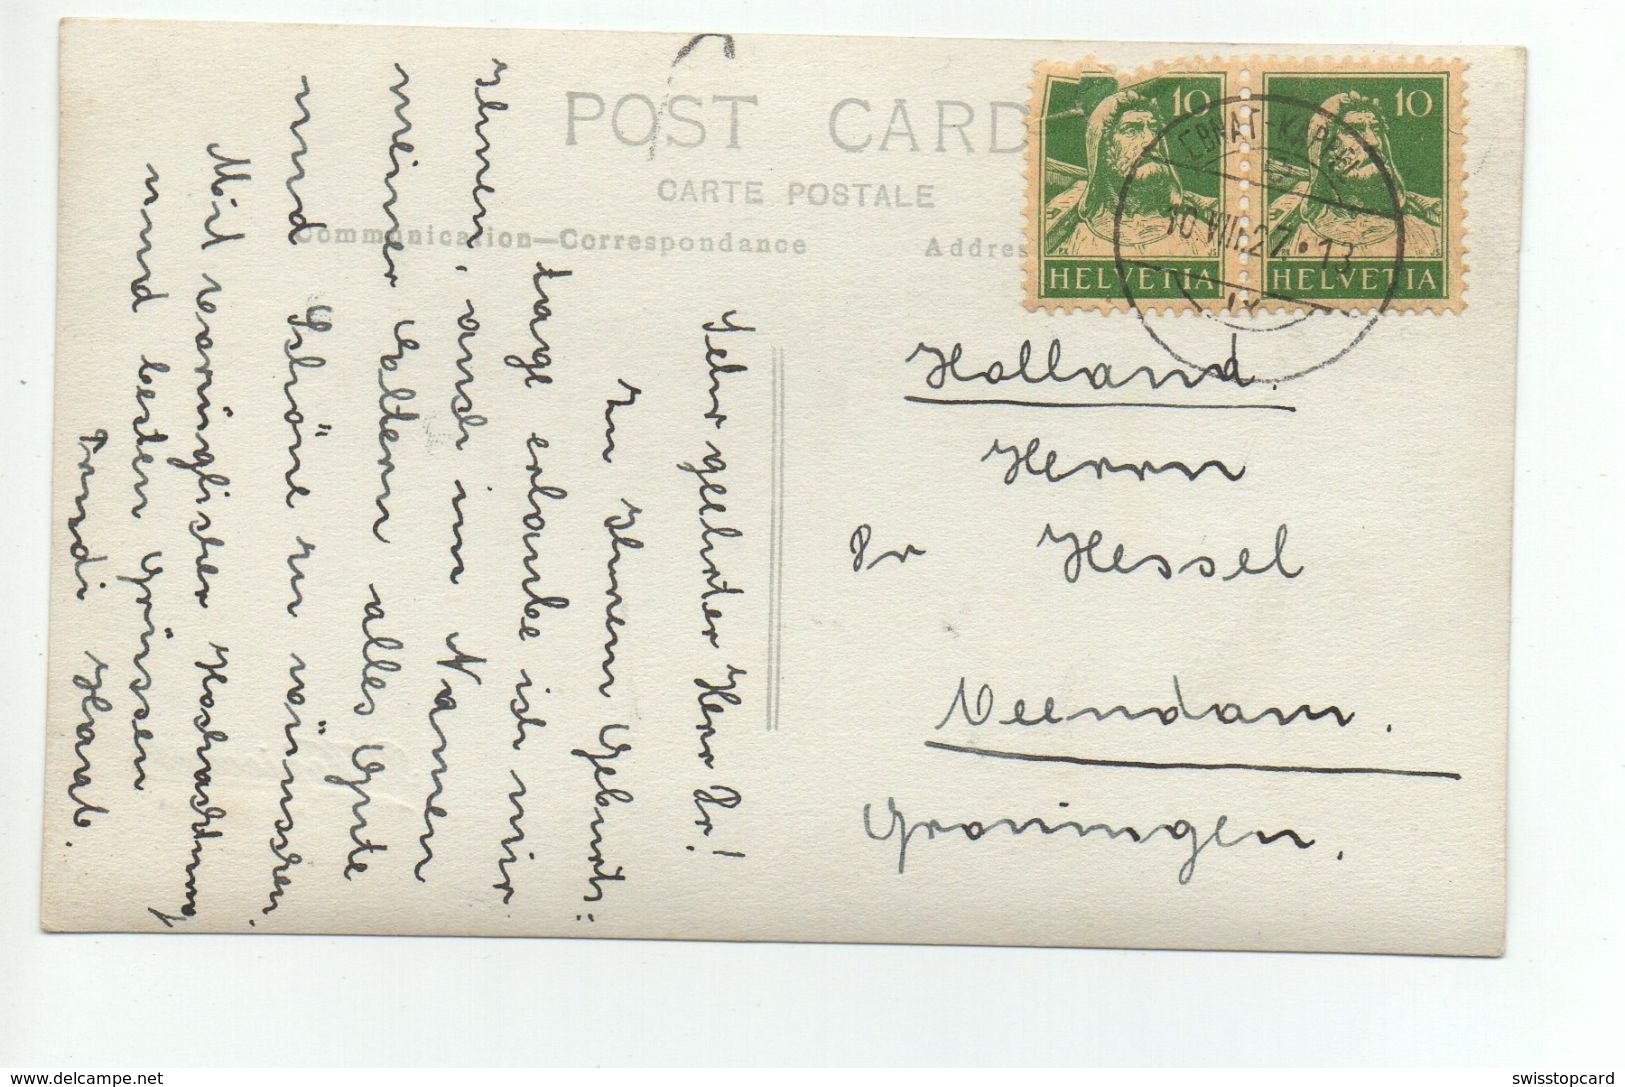 POST CARD
CARTE POSTALE
Communication—Correspondance
Addres
10
HELVETIA
10
HELVETIA
EBNAT-KAPPEL
10.VIII.27.13
Holland.
Herrn
Dr Hessel
Veendam.
Groningen.
Sehr geehrter Herr Dr!
Zu Ihrem Geburts:
tage erlaube ich mir
Ihnen, auch im Namen
meiner Eltern alles Gute
und Schöne zu wünschen.
Mit vorzüglicher Hochachtung
und besten Grüssen
Trudi Haab.
www.delcampe.net
swisstopcard